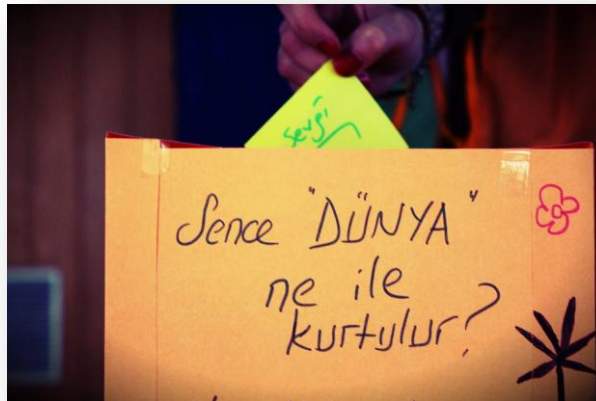 Sevgi
Sence "DÜNYA"
ne ile
kurtulur?